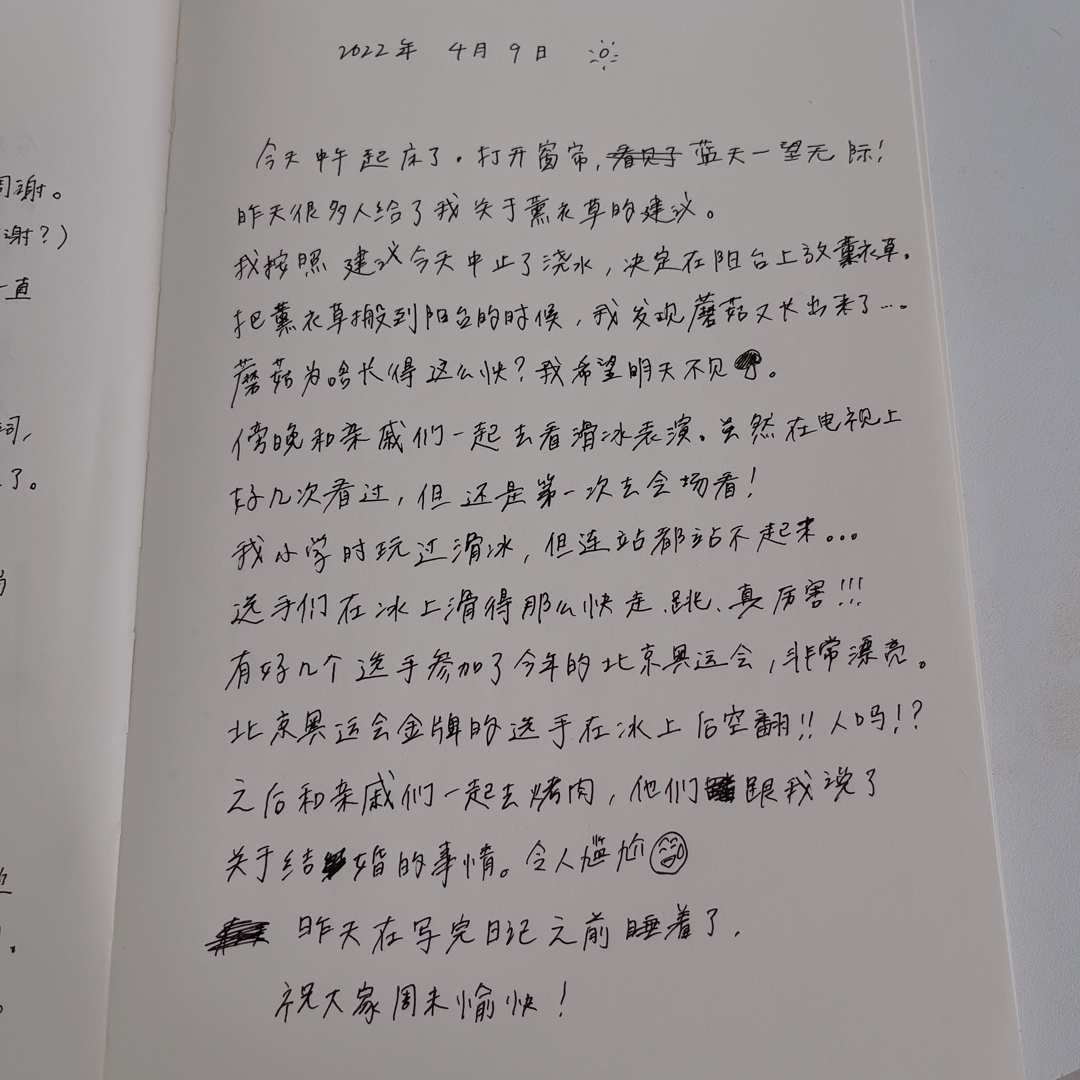 2022年 4月 9日
今天中午起床了。打开窗帘,蓝天一望无际!
昨天很多人给了我关于薰衣草的建议。
我按照建议今天中止了浇水,决定在阳台上放薰衣草。
把薰衣草搬到阳台的时候,我发现蘑菇又长出来了...
蘑菇为啥长得这么快?我希望明天不见。
傍晚和亲戚们一起去看滑冰表演。虽然在电视上
好几次看过,但还是第一次去会场看!
我小学时玩过滑冰,但连站都站不起来...
选手们在冰上滑得那么快走、跳、真厉害!!!
有好几个选手参加了今年的北京奥运会,非常漂亮。
北京奥运会金牌的选手在冰上后空翻!!人吗!?
之后和亲戚们一起去烤肉,他们跟我说了
关于结婚的事情。令人尴尬
昨天在写完日记之前睡着了,
祝大家周末愉快!
周谢。
谢?)
一直
词,
了。